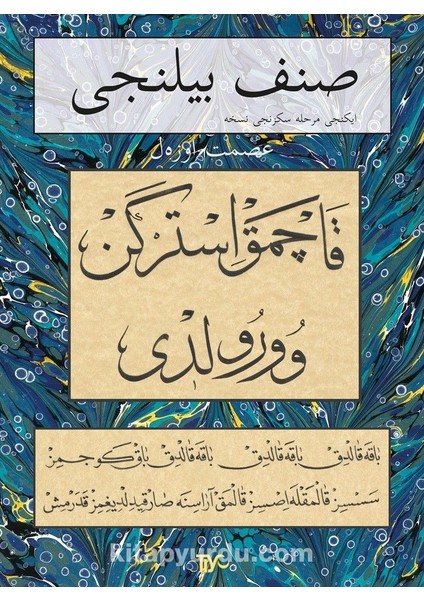 صنف بيلنجى
ايكنجى مرحله سكزنجى نسخه
عصمت اوزه‌ل
قاچمق ايستركن
وورولدى
باقه قالدق باقه قالدق باقه قالدق باق كوجمز
سسسز قالمقله اصسز قالمق آراسنه صارقيديلديغمز قدرمش
kitapyurdu.com
TİYO